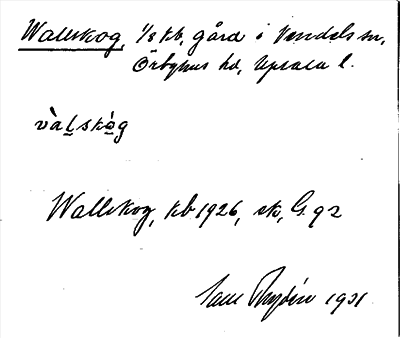 Wallskog, 1/8 kb, gård i Vendels sn,
Örbyhus hd, Upsala l.
vàl̲skó̲g
Wallskog, kb 1926, sk, G 92
Rydén 1931